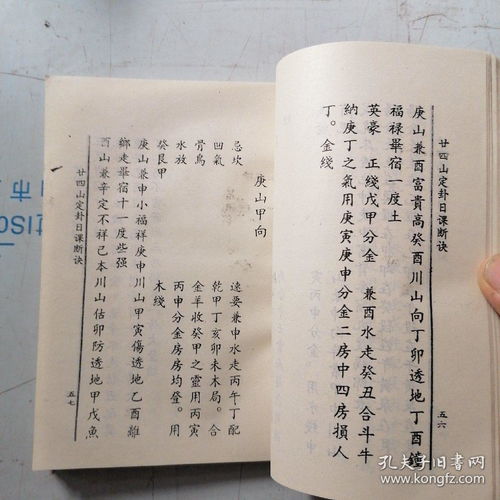 廿四山定卦日课断诀
五六
庚山兼酉富貴高癸酉川山向丁卯透地丁酉鐘
福禄畢宿一度土
英豪 正綫戊甲分金 兼酉水走癸丑合斗牛
納庚丁之氣用庚寅庚申分金二房中四房損人
丁。金綫
庚山甲向
忌坎 速要兼申水走丙午丁配
凹氣 乾甲丁亥卯未木局。合
骨烏 金羊收癸甲之靈用丙寅
水放 丙申分金房房均發。用
癸艮甲 木綫
庚山兼申小福祥庚申川山甲寅傷透地乙酉離
鄉走畢宿十一度些强
酉山兼辛定不祥己本川山估卯防透地甲戊魚
廿四山定卦日课断诀
五七
ISO
市
孔夫子旧书网
www.kongfz.com